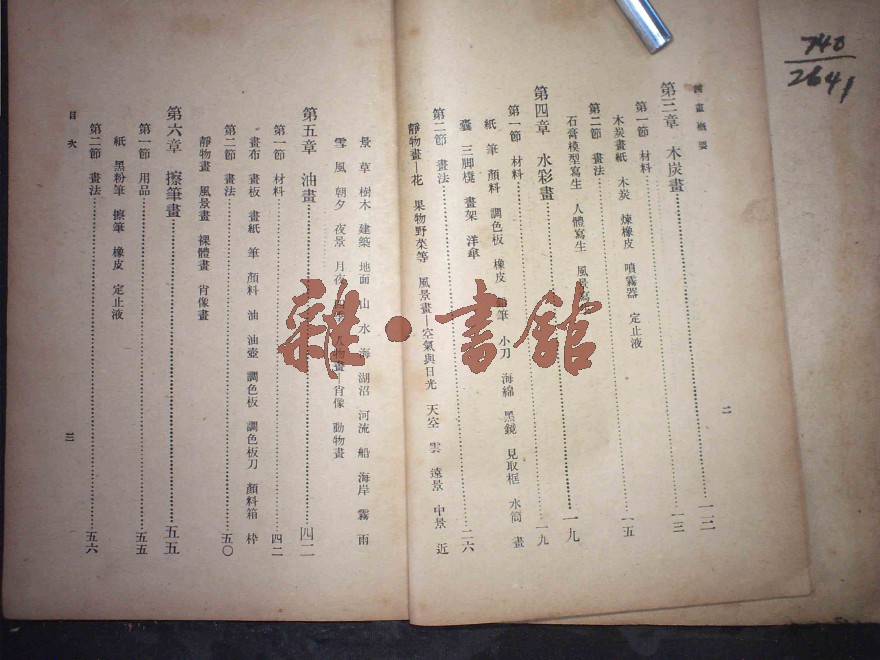 740
2641
畫概要
二
第三章 木炭畫 一二
第一節 材料 一三
木炭畫紙 木炭 煉橡皮 噴霧器 定止液
第二節 畫法 一五
石膏模型寫生 人體寫生 風景寫生
第四章 水彩畫 一九
第一節 材料 一九
紙 筆 顏料 調色板 橡皮 筆 小刀 海綿 黑鏡 見取框 水筒 畫
囊 三脚櫈 畫架 洋傘
第二節 畫法 二六
靜物畫—花 果物野菜等 風景畫—空氣與日光 天空 雲 遠景 中景 近
景 草 樹木 建築 地面 山 水 海 湖沼 河流 船 海岸 霧 雨
雪 風 朝夕 夜景 月夜 人物畫—肖像 動物畫
第五章 油畫 四二
第一節 材料 四二
畫布 畫板 畫紙 筆 顏料 油 油壺 調色板 調色板刀 顏料箱 枠
第二節 畫法 五〇
靜物畫 風景畫 裸體畫 肖像畫
第六章 擦筆畫 五五
第一節 用品 五五
紙 黑粉筆 擦筆 橡皮 定止液
第二節 畫法 五六
目次
三
雜·書館